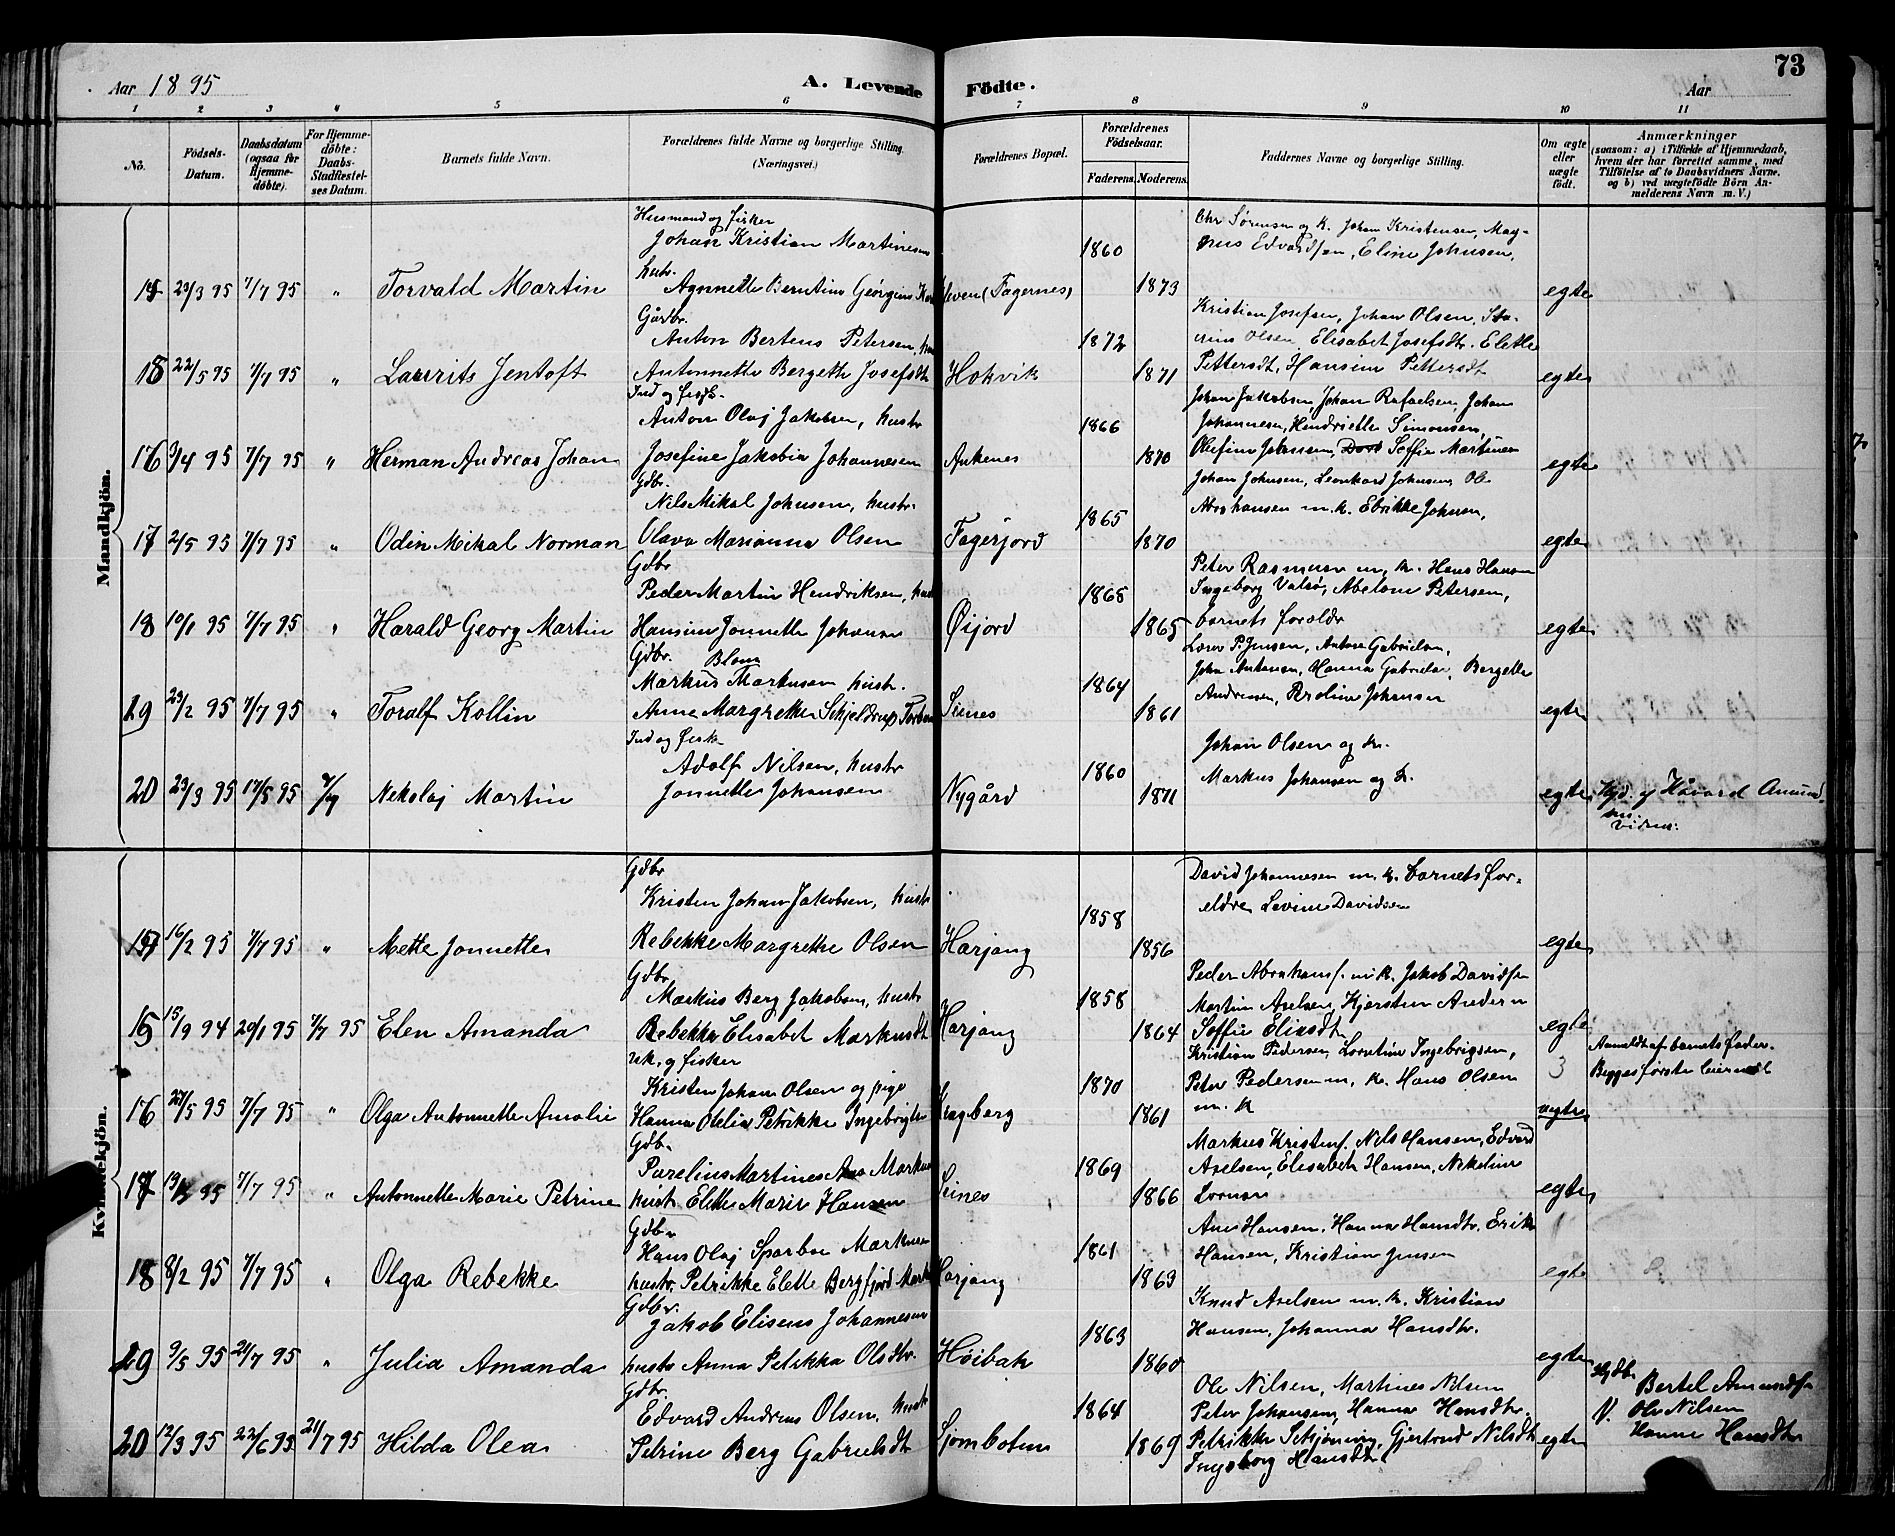 73
Aar 1895 A. Levende Födte. Aar
1 2 3 4 5 6 7 8 9 10 11
No. Födsels-Datum. Daabsdatum (ogsaa for Hjemmedöbte). For Hjemmedöbte: Daabs-Stadfæstelses Datum. Barnets fulde Navn. Forældrenes fulde Navne og borgerlige Stilling. (Næringsvei.) Forældrenes Bopæl. Forældrenes Födselsaar. Faderens. Moderens. Faddernes Navne og borgerlige Stilling. Om ægte eller uægte födt. Anmærkninger (saasom: a) i Tilfælde af Hjemmedaab, hvem der har forrettet samme, med Tilföielse af to Daabsvidners Navne, og b) ved uægtefödte Börn Anmelderens Navn m. V.)
Mandkjön.
Husmand og fisker
Johan Kristian Martinesen
hustr.
23/3 95 7/7 95 " Torvald Martin Agnnette Berntine (Fagernes) 1860 1873 egte
Chr Sørensen og k. Johan Kristensen, Mag-
nus Edvardsen, Eline Johnsen,
Gårdbr.
Anton Bertens Petersen,
22/5 95 7/7 95 " Laurits Jentoft Antonnette Bergette Josefsdt Hokvik 1872 1871 egte
Kristian Josefsen, Johan Olsen,
Olsen, Elisabet Josefsdtr. Elette
Pettersdt, Hansine Pettersdt
Ind og
Anton Olaj Jakobsen, hustr
16 3/4 95 7/7 95 " Herman Andreas Johan Josefine Jakobia Johannesen Ankenes 1866 1870 egte
Johan Jakobsen, Johan Rafaelsen, Johan
Johannesen, Hendriette Simonsen,
Olefine Johansen, Soffie Martinsen
Gdbr.
Nils Mikal Johnsen, hustr.
17 2/5 95 7/7 95 " Odin Mikal Norman Olava Marianna Olsen Fagerjord 1865 1870 egte
Johan Johnsen, Leonhard Johnsen, Ole
Abrahamsen m. k. Johnsen,
Gdbr
Peder Martin Hendriksen,
18 10/1 95 7/7 95 " Harald Georg Martin Hansine Jonnette Johansen Øijord 1865 1865 egte
Peter Rasmusen m. k. Hans Hansen
Ingeborg Valsø, Abelone Petersen,
barnets foreldr
Gdbr. Blom
Markus Markusen hustr.
19 23/2 95 7/7 95 " Toralf Kollin Anne Margrethe Schjeldrup Seines 1864 1861 egte
P. Jensen, Antone Gabrielsen,
John Antonsen, Hanna Gabrielsen, Bergette
Andresen, Johansen
Ind og fisk
Adolf Nilsen, hustr
20 23/3 95 17/5 95 7/7 Nekolaj Martin Jonnette Johansen Nygård 1860 1871 egte Hjd. af Håvard Amund
Johan Olsen og k.
Markus Johansen og k.
Kvindekjön.
Gdbr
Kristen Johan Jakobsen, hustr
16/2 95 7/7 95 " Mette Jonnette Rebekke Margrethe Olsen Harjang 1858 1856 egte
David Johannesen m. k. barnets for-
eldre Levine Davidsen
Gdbr
Markus Berg Jakobsen, hustr
15 15/9 94 20/1 95 7/7 95 Elen Amanda Rebekka Elisabet Markusdt Harjang 1858 1864 egte
Peder Abrahams. m. k. Jakob Davidsen
Martin Axelsen, Kjersten Andersen
Soffie Eliasdtr
Uk. og fisker
Kristen Johan Olsen og pige
16 23/5 95 7/7 95 " Olga Antonnette Amalie Hanna Otelia Petrikke Ingebrigtsen 1870 1861 uegte
Kristian Pedersen, Lorntine Ingebrigtsen,
Peter Pedersen m. k. Hans Olsen
m. k
Anmeldt af barnets fader.
Begges første leiermål
Gdb.
Parelius Martines Markusen
17 95 7/7 95 " Antonnette Marie Petrine hustr Elette Marie Hansen Seines 1869 1866 egte
Markus Kristens. Nils Hansen, Edvard
Axelsen, Elisabeth Hansen, Nekoline
Gdbr
Hans Olaj Sparboe Markusen
18 8/2 95 7/7 95 " Olga Rebekke hustr. Petrikke Elette Bergfjord Harjang 1861 1863 egte
Hansen, Hanna Hansdtr. Erik
Hansen, Kristian Jensen
Gdbr.
Jakob Eliseus Johannesen
19 9/5 95 21/7 95 " Julia Amanda hustr Anna Petrikka Olsdtr. Höibak 1863 1860 egte
Knud Axelsen m. k. Kristian
Hansen, Johanna Hansdtr.
Gdbr.
Edvard Andreas Olsen,
20 12/3 95 22/6 95 21/7 95 Hilda Olea Petrine Berg Gabrielsdt 1864 1869 egte
Ole Nilsen, Martines Nilsen
Peter Johansen, Hanna Hansdtr.
Petrikke Schjøning, Gjertrud Nilsdt
Ingeborg Hansdtr
Bertel Amundsn
V. Ole Nilsen
Hanna Hansdtr